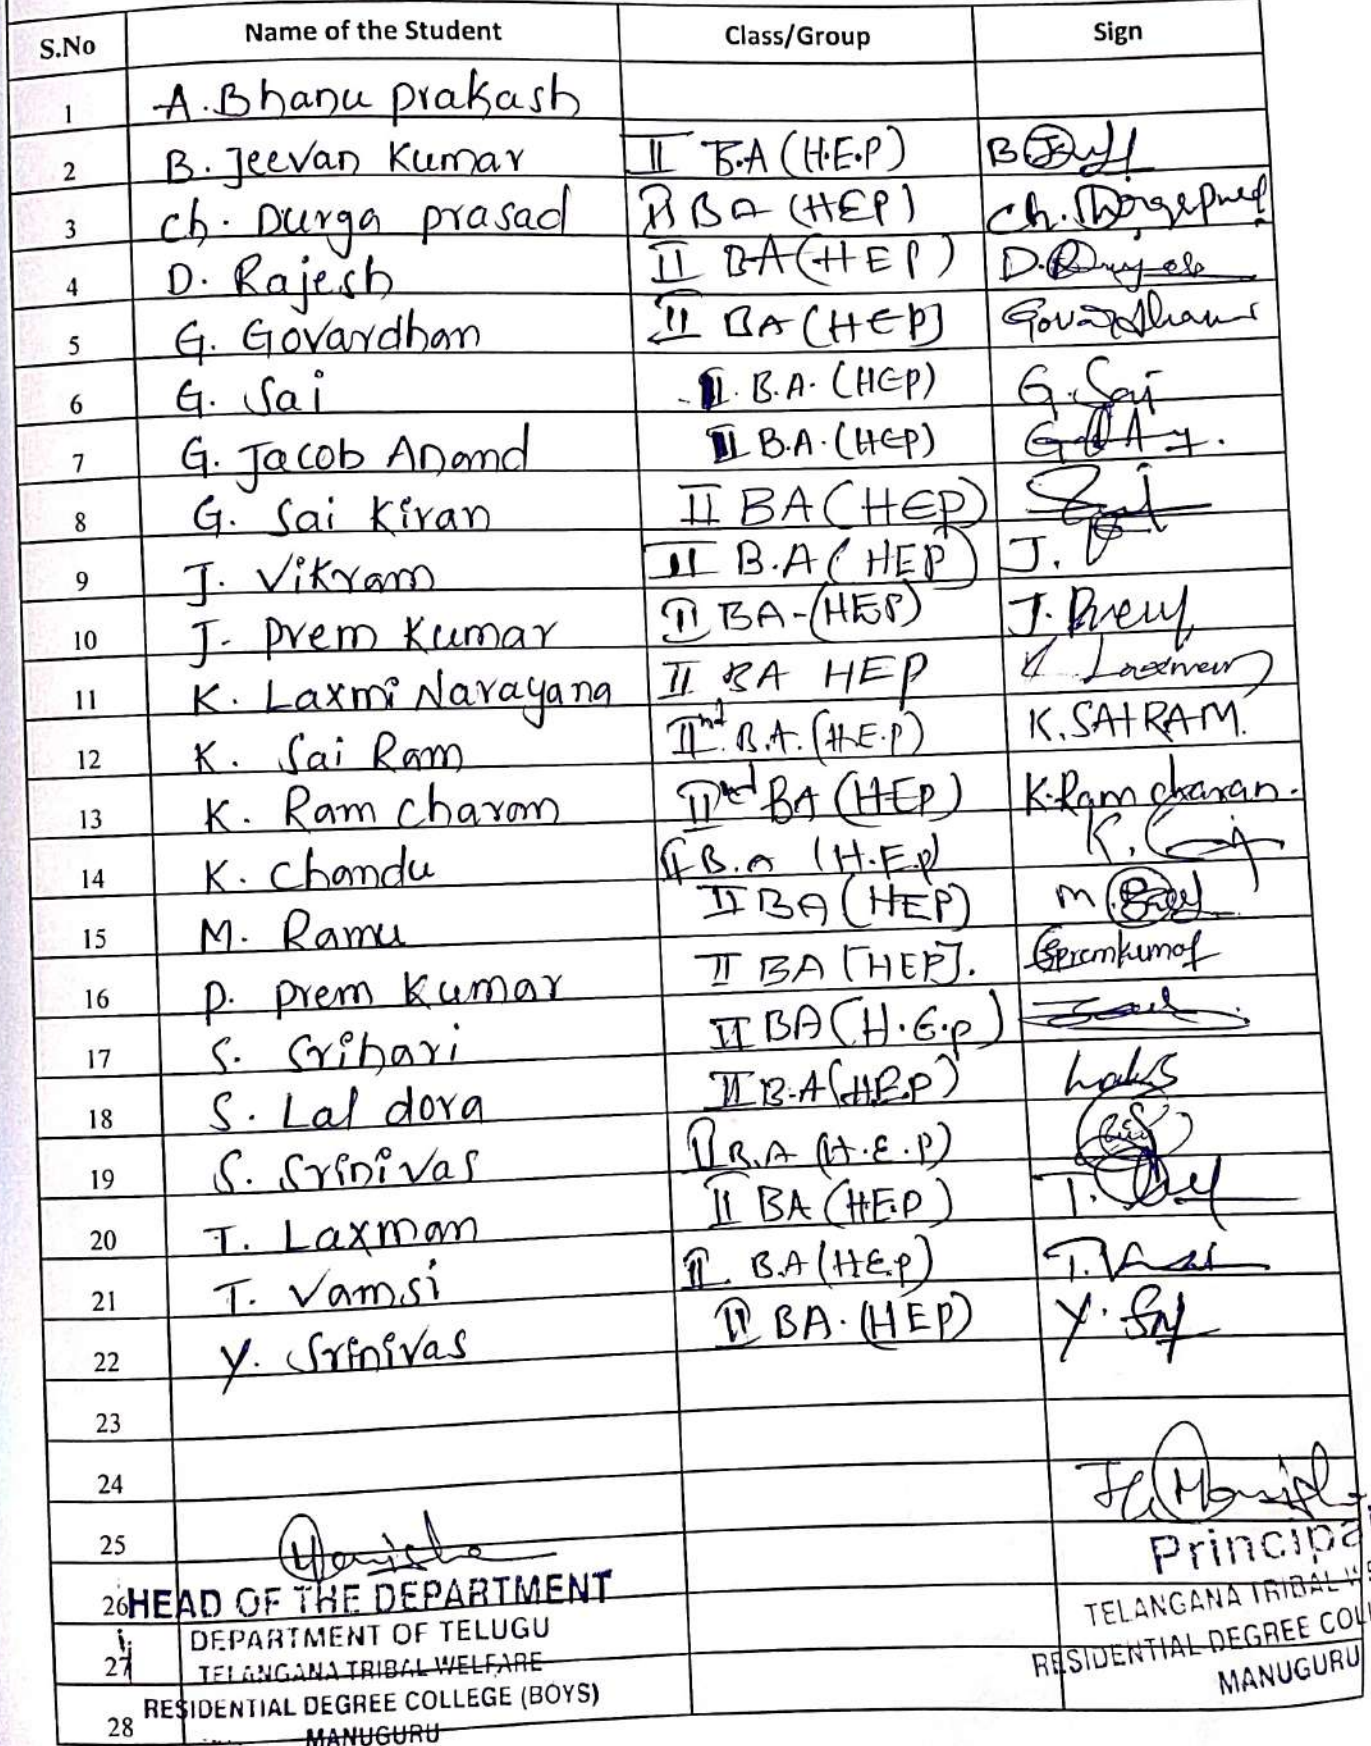 S.No Name of the Student Class/Group Sign
1 A. Bhanu prakash
2 B. Jeevan Kumar II B.A (H.E.P) B
3 Ch. Durga prasad II BA (HEP) Ch.
4 D. Rajesh II BA (HEP) D.
5 G. Govardhan II BA (HEP) Govardhan
6 G. Sai II. B.A. (HEP) G. Sai
7 G. Jacob Anand II B.A. (HEP)
8 G. Sai Kiran II BA (HEP)
9 J. Vikram II B.A (HEP) J.
10 J. prem Kumar II BA-(HEP) J. Prem
11 K. Laxmi Narayana II BA HEP K Laxman
12 K. Sai Ram IInd B.A. (H.E.P) K. SAI RAM.
13 K. Ram charan IInd BA (HEP) K. Ram charan.
14 K. chandu II B.A (H.E.P) K.
15 M. Ramu II BA (HEP) M
16 P. prem Kumar II BA [HEP]. Premkumar
17 S. Srihari II BA (H.E.P)
18 S. Lal dora II B.A (H.E.P)
19 S. Srinivas II B.A (H.E.P)
20 T. Laxman II BA (H.E.P) T.
21 T. Vamsi II B.A (H.E.P) T. Vamsi
22 Y. Srinivas II BA. (HEP) Y.
23
24
25 Manisha
26 HEAD OF THE DEPARTMENT Principa
27 DEPARTMENT OF TELUGU TELANGANA TRIBAL WE
TELANGANA TRIBAL WELFARE RESIDENTIAL DEGREE COLL
28 RESIDENTIAL DEGREE COLLEGE (BOYS) MANUGURU
MANUGURU